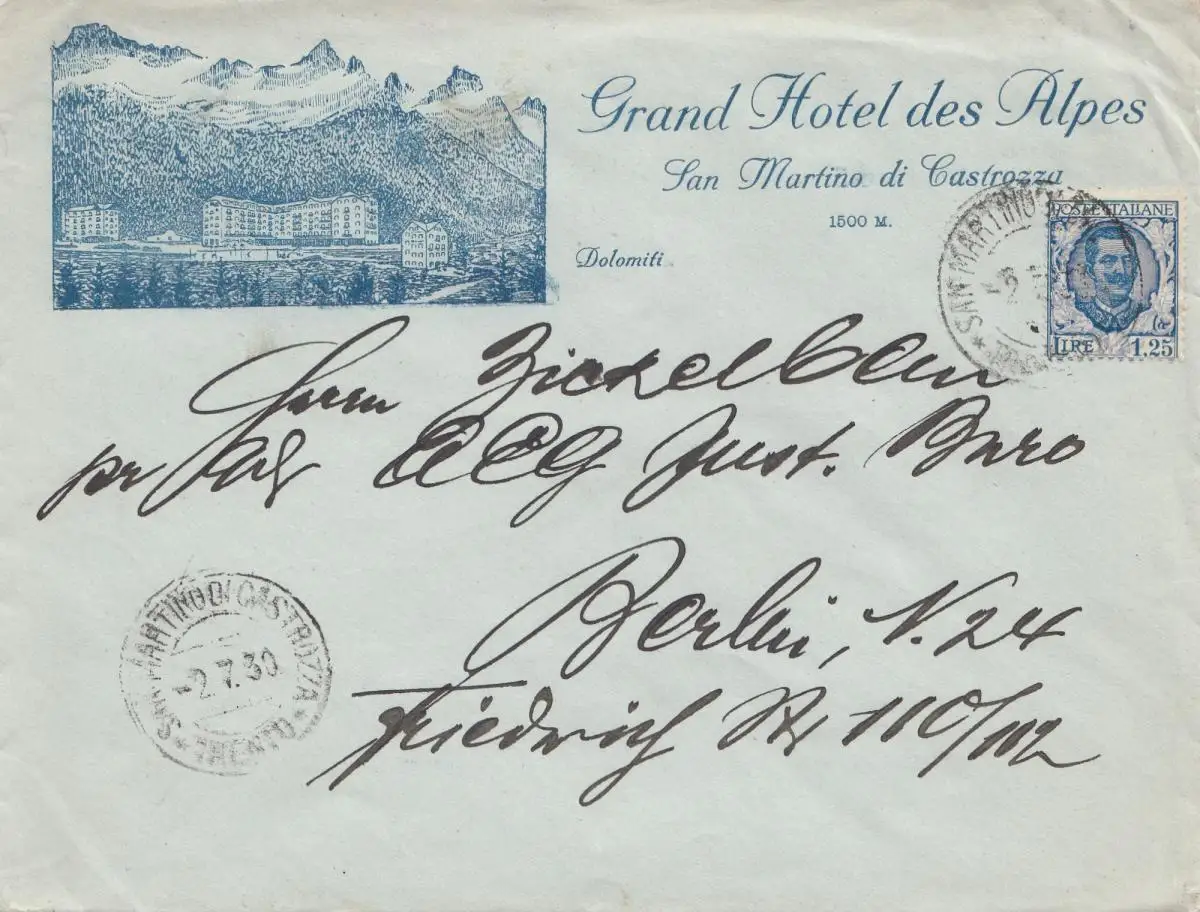 Grand Hotel des Alpes
San Martino di Castrozza
1500 M.
Dolomiti
POSTE ITALIANE
LIRE 1.25
SAN MARTINO
-2.
Herrn Zickelbein
pr Adr AEG Inst. Büro
Berlin, N. 24
Friedrich Str 110/112
SAN MARTINO DI CASTROZZA
-2.7.30
* TRENTO *